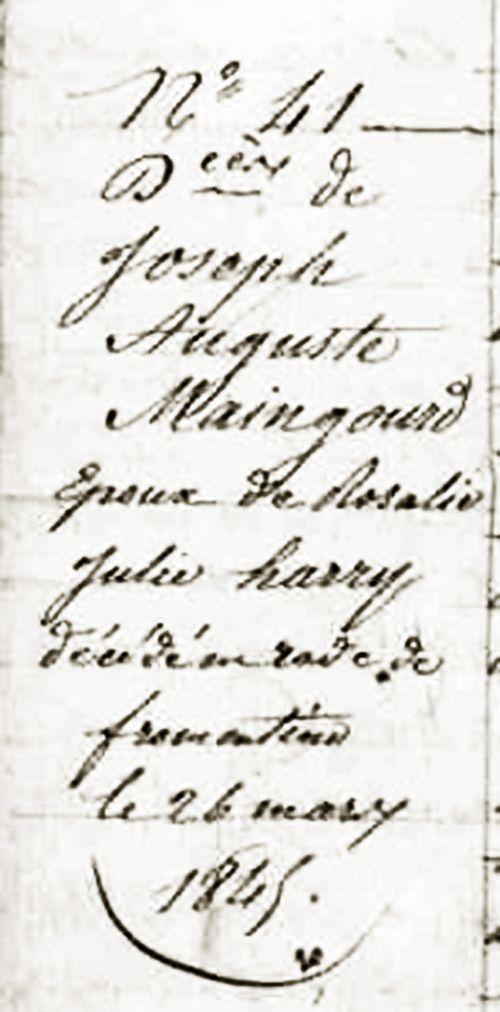 N° 41
D cès de
Joseph
Auguste
Maingourd
Epoux de Rosalie
Julie harry
décédé en rade de
fromentine
le 26 mars
1845.